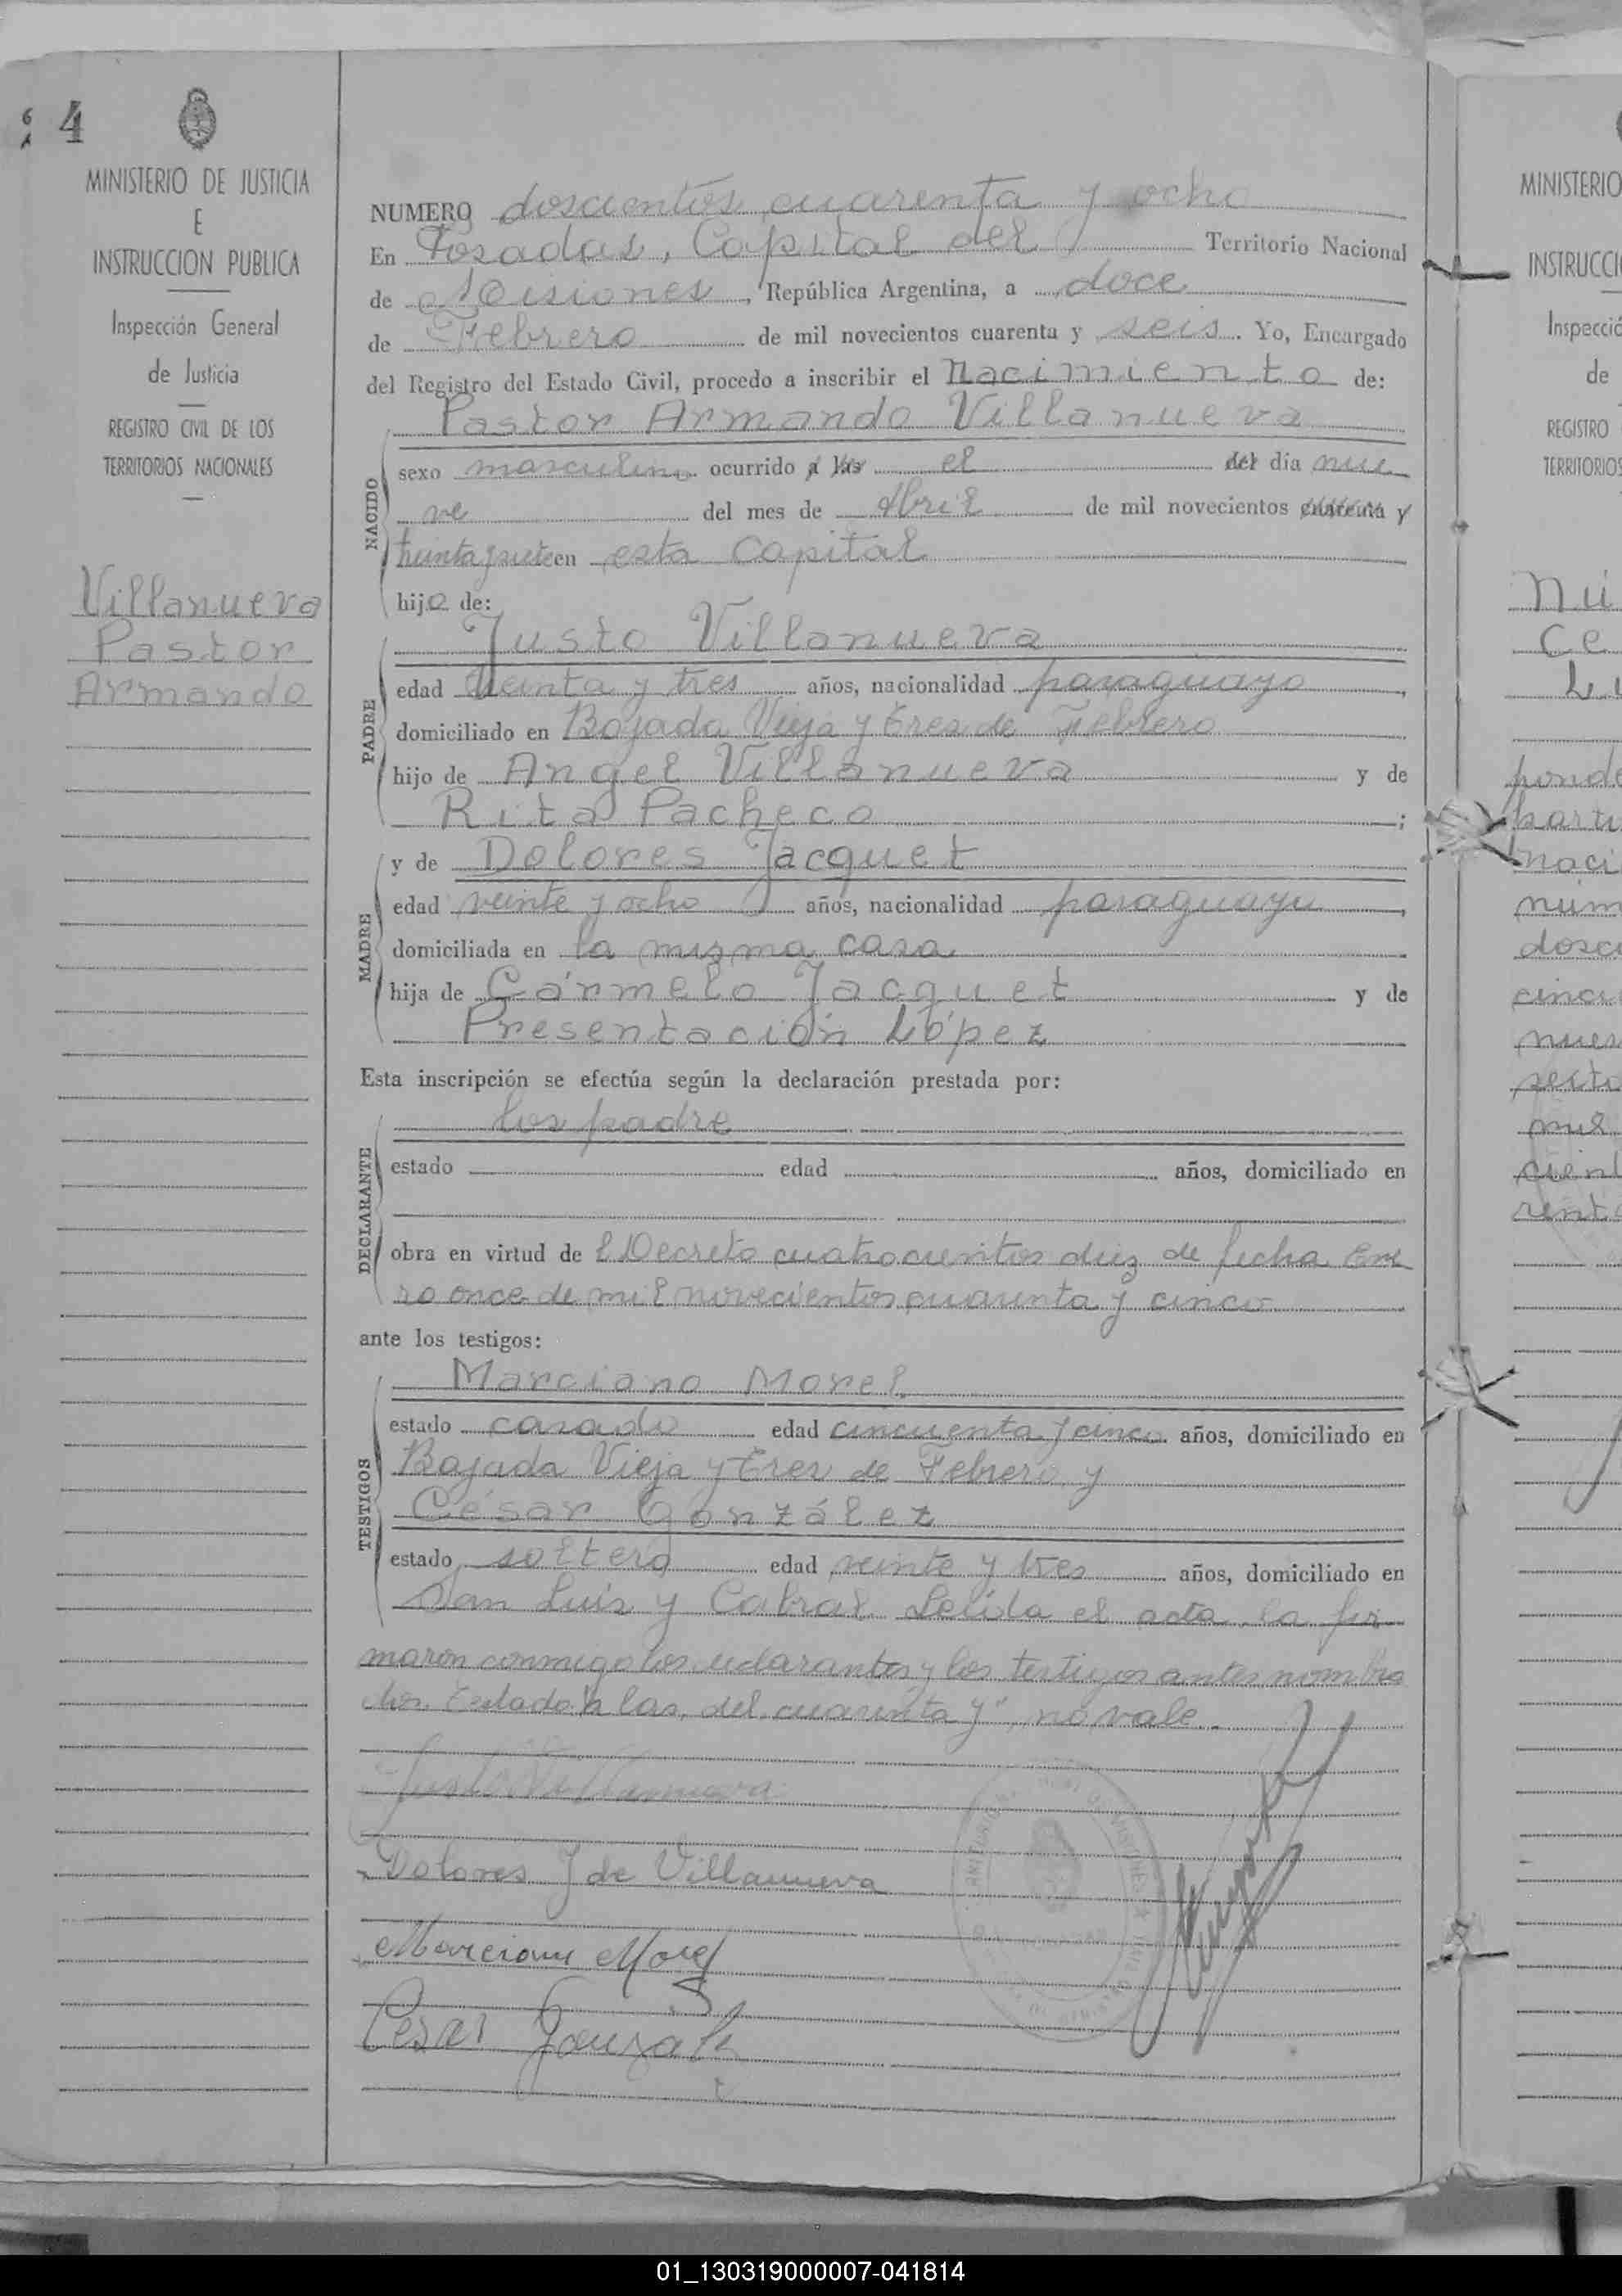 4
MINISTERIO DE JUSTICIA
E
INSTRUCCION PUBLICA
Inspección General
de Justicia
REGISTRO CIVIL DE LOS
TERRITORIOS NACIONALES
Villanueva
Pastor
Armando
NUMERO doscientos cuarenta y ocho
En Posadas, Capital del Territorio Nacional
de Misiones, República Argentina, a doce
de Febrero de mil novecientos cuarenta y seis. Yo, Encargado
del Registro del Estado Civil, procedo a inscribir el Nacimiento de:
Pastor Armando Villanueva
NACIDO
sexo masculino ocurrido a las el del día nue
ve del mes de Abril de mil novecientos cuarenta y
treinta y siete en esta Capital
hijo de:
Justo Villanueva
PADRE
edad treinta y tres años, nacionalidad paraguayo,
domiciliado en Bajada Vieja y tres de Febrero
hijo de Angel Villanueva y de
Rita Pacheco;
y de Dolores Jacquet
MADRE
edad veinte y ocho años, nacionalidad paraguaya,
domiciliada en la misma casa
hija de Cármelo Jacquet y de
Presentación López
Esta inscripción se efectúa según la declaración prestada por:
los padre
DECLARANTE
estado edad años, domiciliado en
obra en virtud de l Decreto cuatrocientos diez de fecha Ene
ro once de mil novecientos cuarenta y cinco
ante los testigos:
Marciano Morel
TESTIGOS
estado casado edad cincuenta y cinco años, domiciliado en
Bajada Vieja y tres de Febrero y
César González
estado soltero edad veinte y tres años, domiciliado en
San Luis y Cabral. Leída el acta, la fir
maron conmigo los declarantes y los testigos antes nombra
dos. Testado "a las, del, cuarenta y", no vale.
Justo Villanueva
Dolores J de Villanueva
Marciano Morel
Cesar González
MINISTERIO
INSTRUCCI
Inspecció
de
REGISTRO
TERRITORIOS
Nú
ce
Lu
ponde
parti
naci
núm
dosci
cincu
nuev
mil
cient
01_130319000007-041814